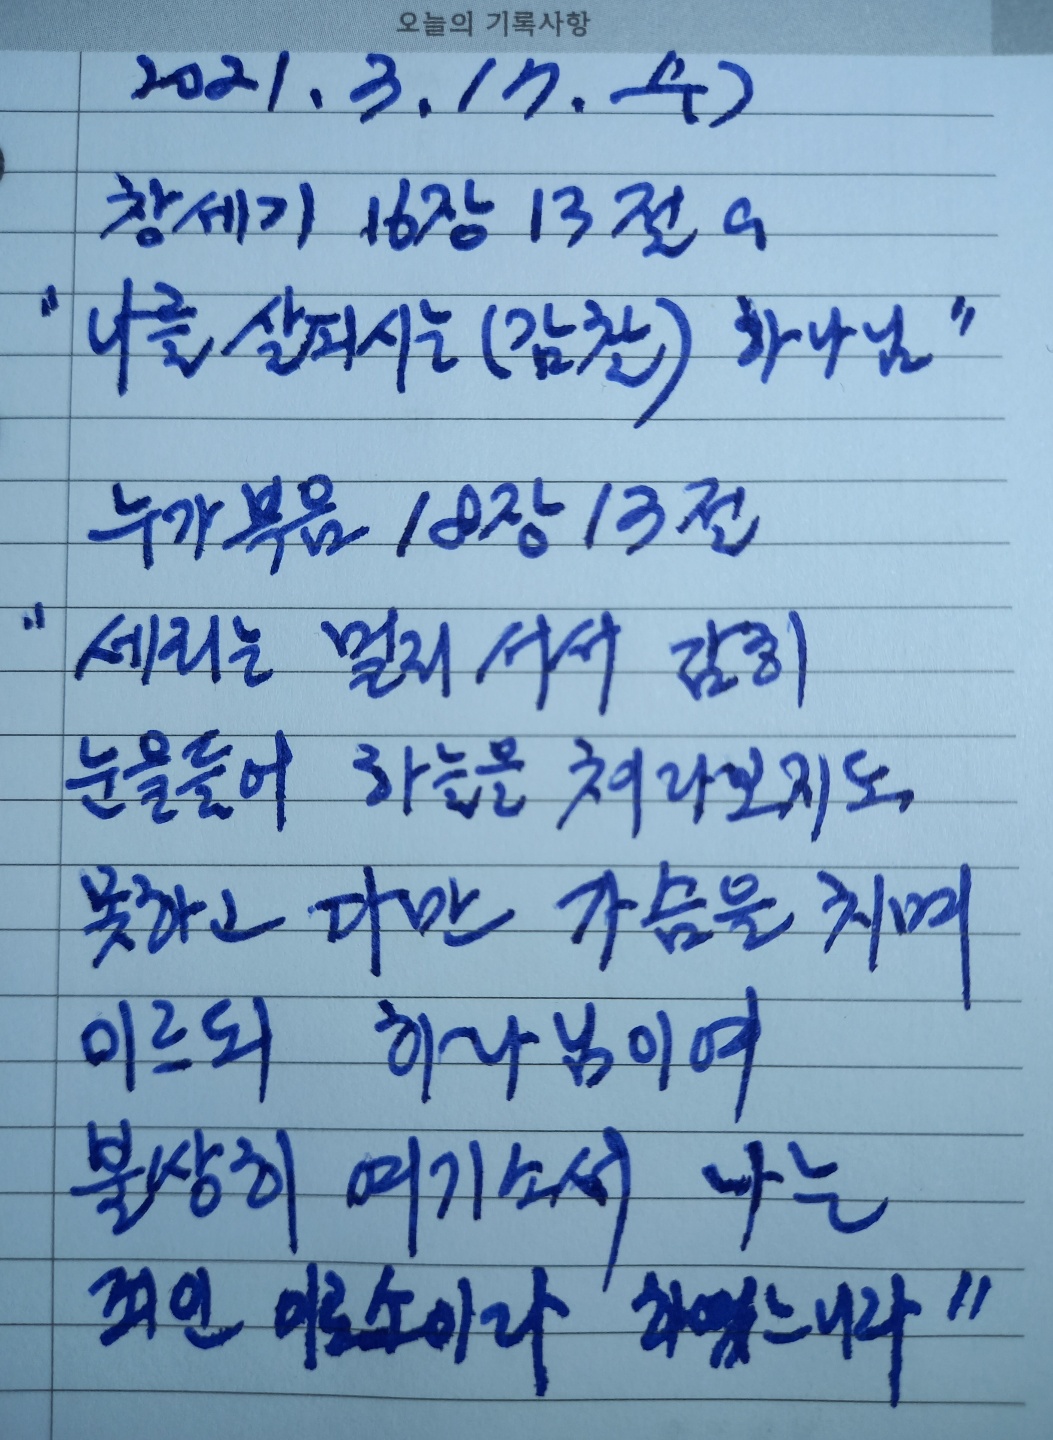 오늘의 기록사항
2021. 3. 17. 수)
창세기 16장 13절 a
"나를 살피시는(감찰) 하나님"
누가복음 18장 13절
"세리는 멀리 서서 감히
눈을들어 하늘을 쳐다보지도
못하고 다만 가슴을 치며
이르되 하나님이여
불쌍히 여기소서 나는
죄인이로소이다 하였느니라"